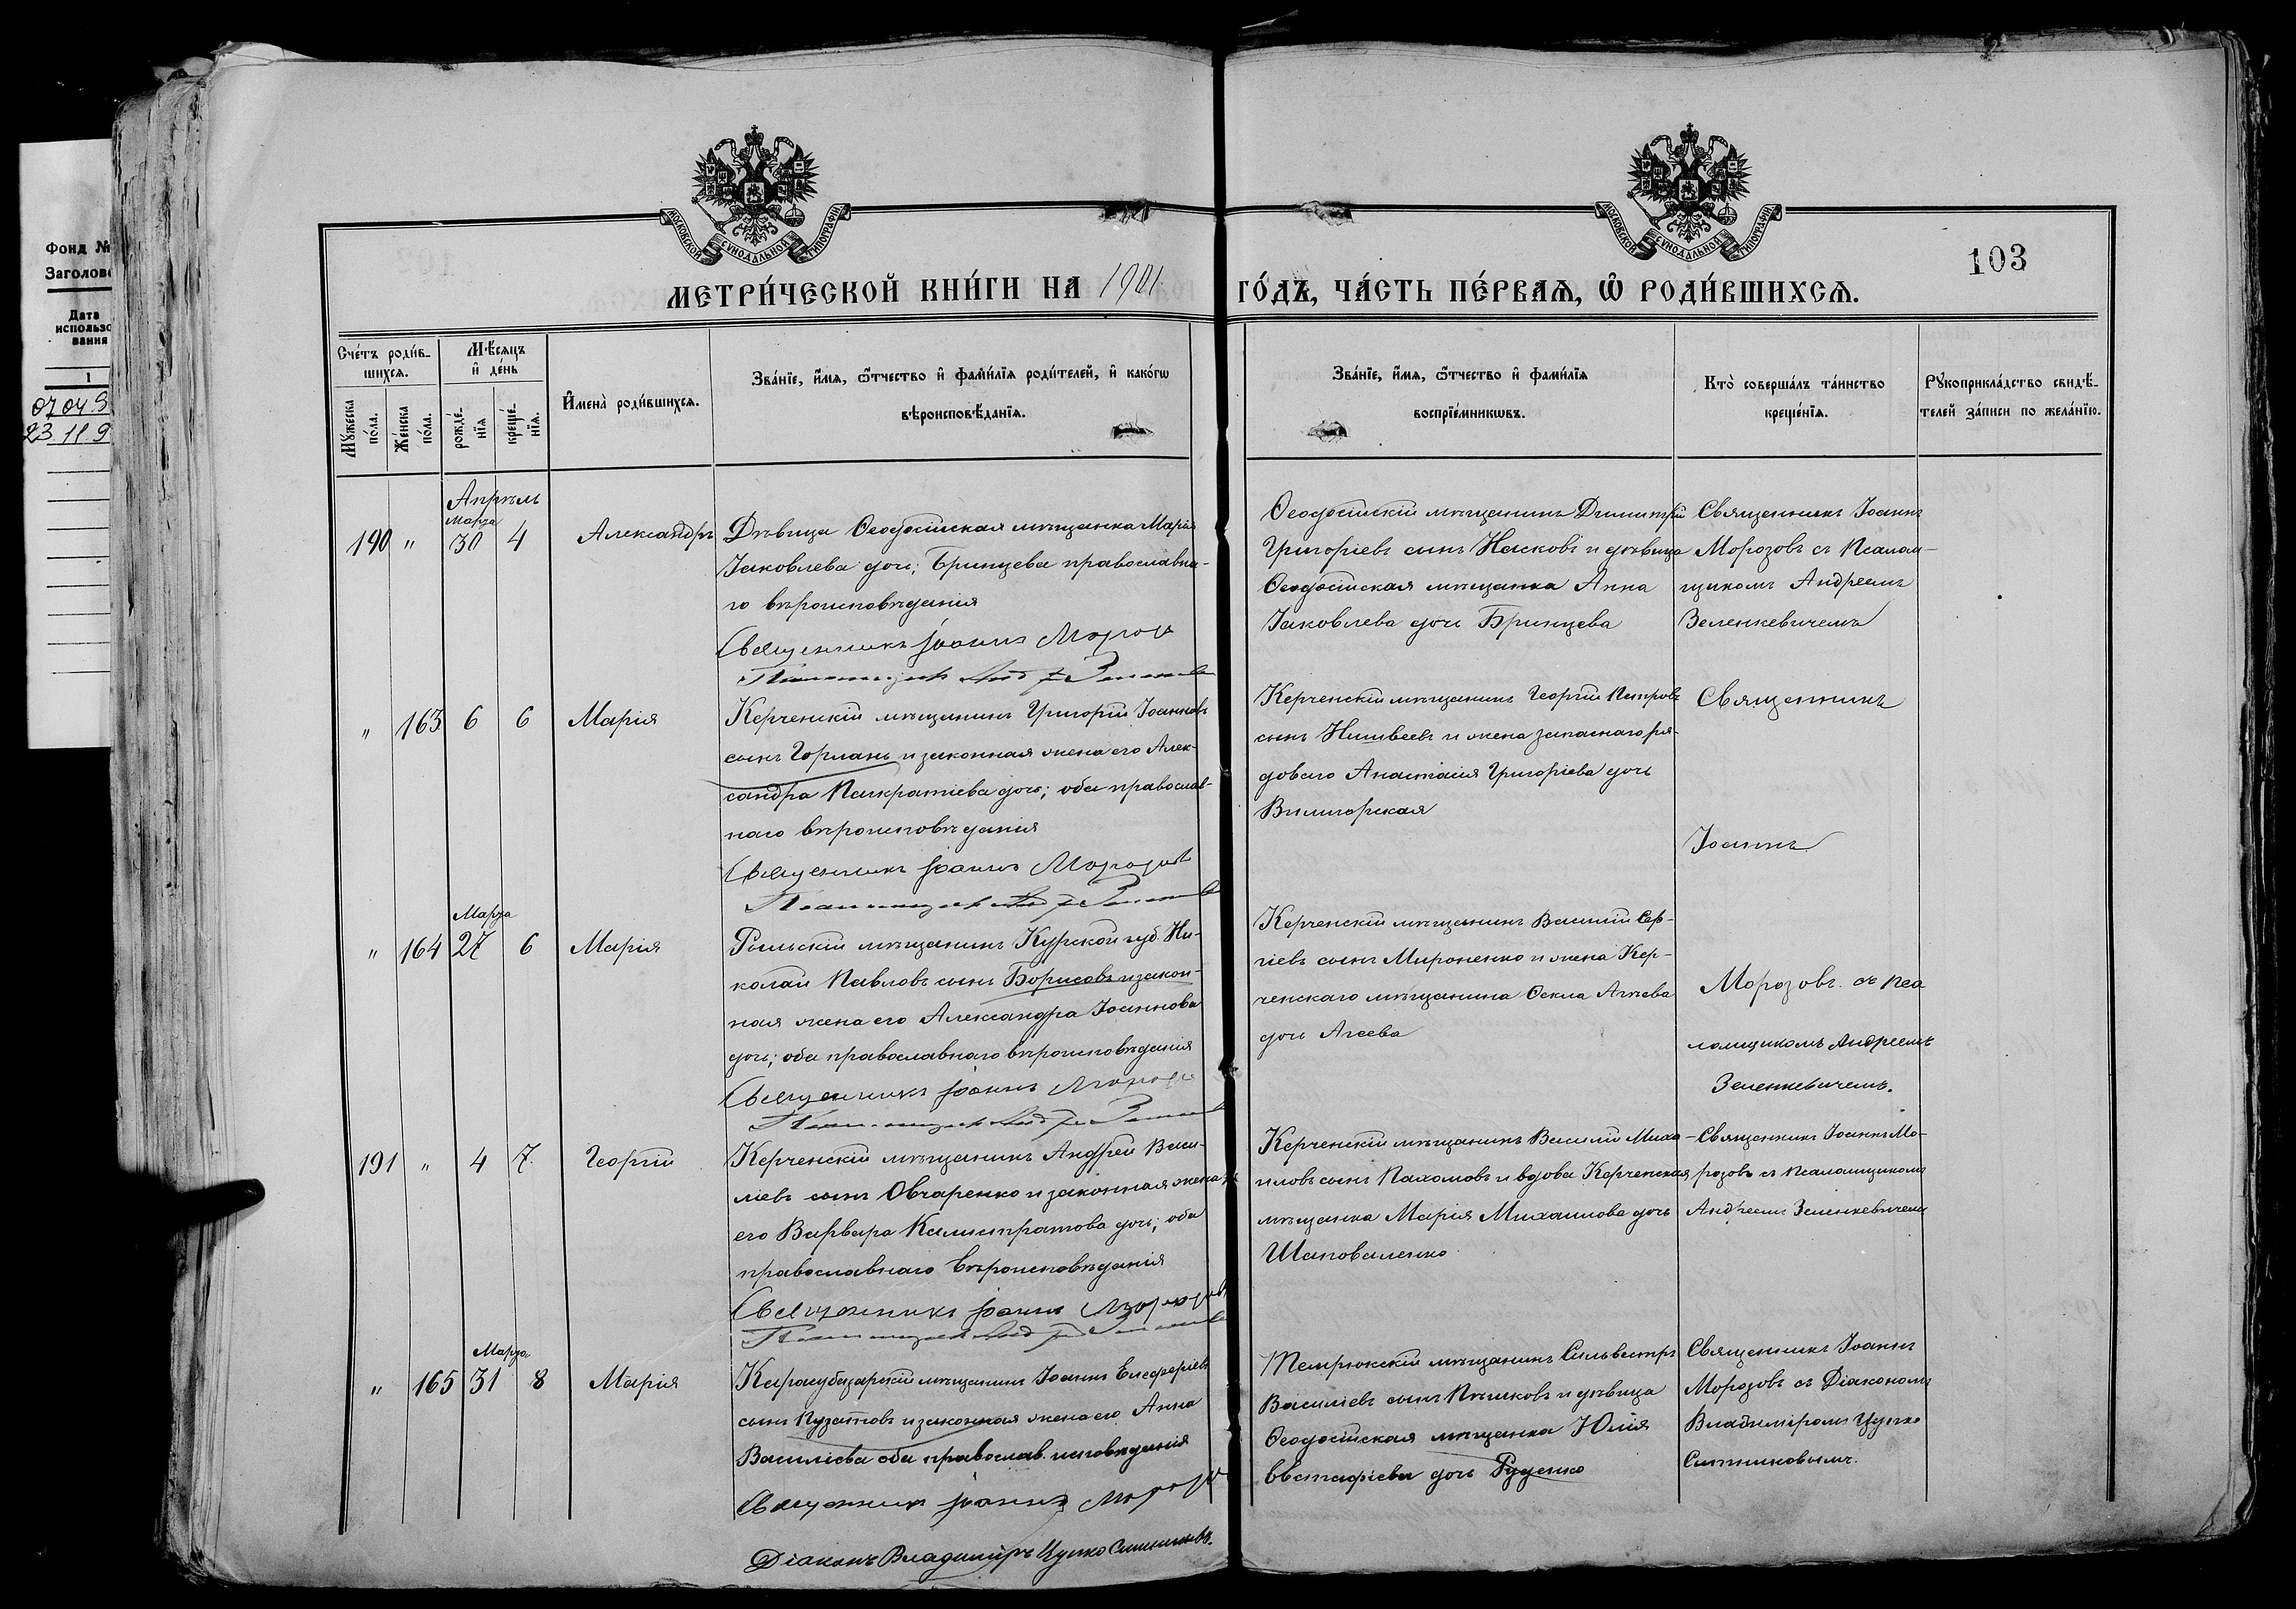 Фонд №
Заголово
Дата
использо
вания
1
07 04 9
23. 11 9
МОСКОВСКОЙ СУНОДАЛЬНОЙ ТИПОГРАФІИ
МОСКОВСКОЙ СУНОДАЛЬНОЙ ТИПОГРАФІИ
103
МЕТРИ́ЧЕСКОЙ КНИ́ГИ НА 1901 ГО́ДЪ, ЧА́СТЬ ПЕ́РВАѦ, Ѡ РОДИ́ВШИХСѦ.
Сче́тъ роди́в-
шихсѧ.
Мѣ́сѧцъ
и҆ де́нь
Мꙋ́жеска
по́ла.
Же́нска
по́ла.
рожде́-
нїѧ
креще́-
нїѧ.
И҆мена̀ роди́вшихсѧ.
Зва́нїе, и҆́мѧ, ѻ҆́тчество и҆ фами́лїѧ роди́телей, и҆ како́гѡ
вѣроисповѣ́данїѧ.
Зва́нїе, и҆́мѧ, ѻ҆́тчество и҆ фами́лїѧ
воспрїе́мникѡвъ.
Кто̀ соверша́лъ та́инство
креще́нїѧ.
Рꙋкоприкла́дство свидѣ́-
телей за́писи по жела́нїю.
Апрѣль
Марта
190 " 30 4 Александръ
Дѣвица Ѳеодосійская мѣщанка Марія
Іаковлева дочь; Бринцева православна-
го вѣроисповѣданія
Священникъ Іоаннъ Морозовъ
Ѳеодосійскій мѣщанинъ Димитрій
Григоріевъ сынъ Насковъ и дѣвица
Ѳеодосійская мѣщанка Анна
Іаковлева дочь Бринцева
Священникъ Іоаннъ
Морозовъ съ Псалом-
щикомъ Андреемъ
Зеленкевичемъ
" 163 6 6 Марія
Керченскій мѣщанинъ Григорій Іоанновъ
сынъ Горланъ и законная жена его Алек-
сандра Панкратіева дочь; оба православ-
наго вѣроисповѣданія
Священникъ Іоаннъ Морозовъ
Керченскій мѣщанинъ Георгій Петровъ
сынъ и жена запаснаго ря-
доваго Анастасія Григоріева дочь
Священникъ
Іоаннъ
Марта
" 164 27 6 Марія
Рыльскій мѣщанинъ Курской губ. Ни-
колай Павловъ сынъ Борисовъ и закон-
ная жена его Александра Іоаннова
дочь; оба православнаго вѣроисповѣданія
Священникъ Іоаннъ Морозовъ
Керченскій мѣщанинъ Василій Сер-
гіевъ сынъ Мироненко и жена Кер-
ченскаго мѣщанина Ѳекла Агѣева
дочь Агеева
Морозовъ съ Пса
ломщикомъ Андреемъ
Зеленкевичемъ.
191 " 4 7. Георгій
Керченскій мѣщанинъ Андрей Васи-
ліевъ сынъ Овчаренко и законная жена
его Варвара Калистратова дочь; оба
православнаго вѣроисповѣданія
Священникъ Іоаннъ Морозовъ
Керченскій мѣщанинъ Василій Миха-
иловъ сынъ Пахомовъ и вдова Керченская
мѣщанка Марія Михаилова дочь
Шаповаленко
Священникъ Іоаннъ Мо-
розовъ съ Псаломщикомъ
Андреемъ Зеленкевичемъ
Марта
" 165 31 8 Марія
Карасубазарскій мѣщанинъ Іоаннъ Елеѳеріевъ
сынъ Пузатовъ и законная жена его Анна
Василіева оба православ. исповѣданія
Священникъ Іоаннъ Морозовъ
Діаконъ Владиміръ Цупко Ситниковъ.
Темрюкскій мѣщанинъ Сильвестръ
Василіевъ сынъ Пѣшковъ и дѣвица
Ѳеодосійская мѣщанка Юлія
Евстафіева дочь Руденко
Священникъ Іоаннъ
Морозовъ съ Діакономъ
Владиміромъ Цупко
Ситниковымъ.